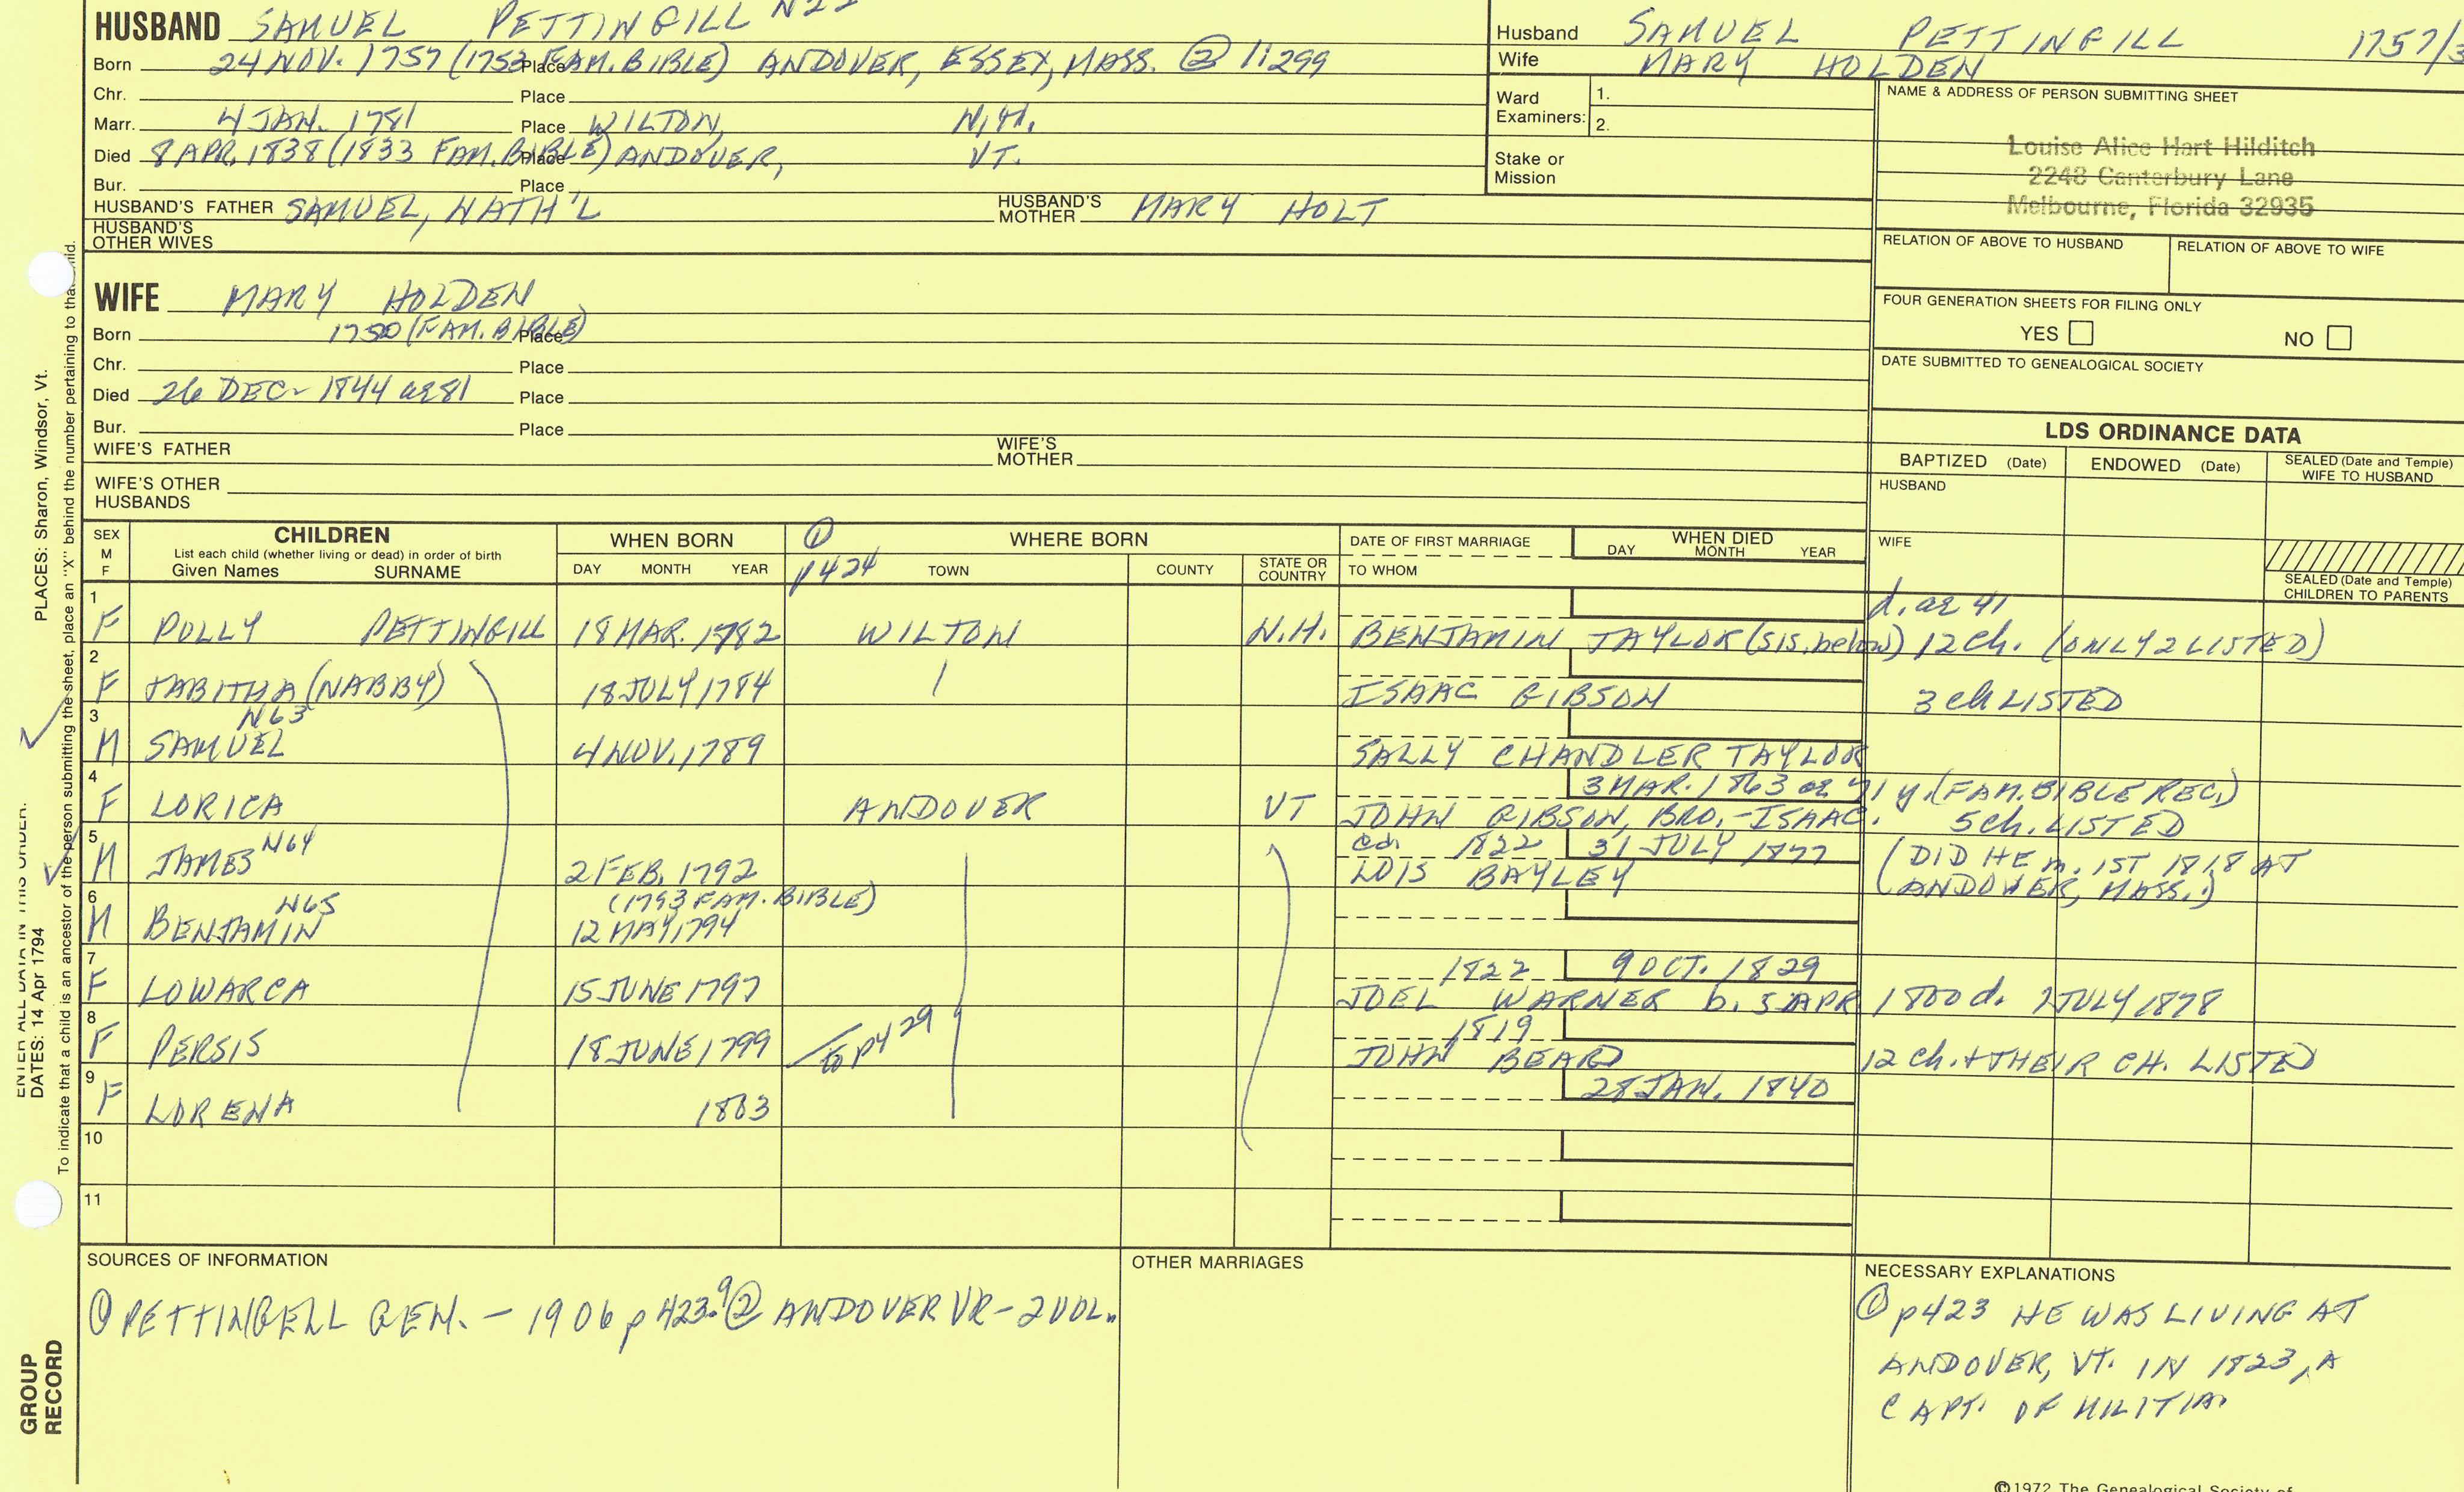 HUSBAND SAMUEL PETTINGILL
Born 24 NOV. 1757 (1753 FAM. BIBLE) Place ANDOVER, ESSEX, MASS. ② 1:299
Chr. Place
Marr. 4 JAN. 1781 Place WILTON, N.H.
Died 8 APR. 1838 (1833 FAM. BIBLE) Place ANDOVER, VT.
Bur. Place
HUSBAND'S FATHER SAMUEL, NATH'L HUSBAND'S MOTHER MARY HOLT
HUSBAND'S OTHER WIVES
Husband SAMUEL PETTINGILL 1757/3
Wife MARY HOLDEN
Ward Examiners: 1.
2.
Stake or Mission
NAME & ADDRESS OF PERSON SUBMITTING SHEET
Louise Alice Hart Hilditch
2248 Canterbury Lane
Melbourne, Florida 32935
RELATION OF ABOVE TO HUSBAND RELATION OF ABOVE TO WIFE
FOUR GENERATION SHEETS FOR FILING ONLY
YES NO
DATE SUBMITTED TO GENEALOGICAL SOCIETY
WIFE MARY HOLDEN
Born 1750 (FAM. BIBLE) Place
Chr. Place
Died 26 DEC- 1844 ae 81 Place
Bur. Place
WIFE'S FATHER WIFE'S MOTHER
WIFE'S OTHER HUSBANDS
LDS ORDINANCE DATA
BAPTIZED (Date) ENDOWED (Date) SEALED (Date and Temple) WIFE TO HUSBAND
HUSBAND
WIFE
SEALED (Date and Temple) CHILDREN TO PARENTS
SEX M F CHILDREN List each child (whether living or dead) in order of birth Given Names SURNAME
WHEN BORN DAY MONTH YEAR
① p424 WHERE BORN TOWN COUNTY STATE OR COUNTRY
DATE OF FIRST MARRIAGE TO WHOM WHEN DIED DAY MONTH YEAR
d. ae 41
1 F POLLY PETTINGILL 18 MAR. 1782 WILTON N.H. BENJAMIN TAYLOR (sis. below) 12 ch. (ONLY 2 LISTED)
2 F TABITHA (NABBY) 18 JULY 1784 ISAAC GIBSON 3 ch LISTED
N63
3 M SAMUEL 4 NOV. 1789 SALLY CHANDLER TAYLOR
3 MAR. 1863 ae 71 y. (FAM. BIBLE REC.)
4 F LORICA ANDOVER VT JOHN GIBSON, BRO.-ISAAC. 5 ch. LISTED
ca. 1822 31 JULY 1877 (DID HE m. 1ST 1818 AT
5 M JAMES N64 2 FEB. 1792 LOIS BAYLEY (ANDOVER, MASS.)
(1793 FAM. BIBLE)
6 M BENJAMIN N65 12 MAY, 1794
1822 9 OCT. 1829
7 F LOWARCA 15 JUNE 1797 JOEL WARNER b. 5 APR 1800 d. 7 JULY 1878
1819
8 F PERSIS 18 JUNE 1799 to p429 JOHN BEARD 12 ch. + THEIR CH. LISTED
28 JAN. 1840
9 F LORENA 1803
10
11
SOURCES OF INFORMATION
① PETTINGELL GEN. - 1906 p 423.9 ② ANDOVER VR - 2 VOL.
OTHER MARRIAGES
NECESSARY EXPLANATIONS
① p423 HE WAS LIVING AT
ANDOVER, VT. IN 1823, A
CAPT. OF MILITIA
©1972 The Genealogical Society of
DATES: 14 Apr 1794
PLACES: Sharon, Windsor, Vt.
ENTER ALL DATA IN THIS ORDER:
To indicate that a child is an ancestor of the person submitting the sheet, place an "X" behind the number pertaining to that child.
GROUP RECORD